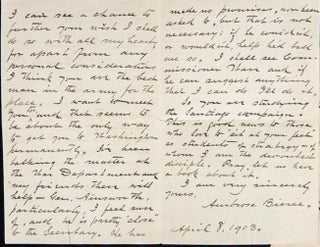 I can see a chance to
further your wish I shall
do so with all my heart,
for apart from any
personal considerations
I think you are the best
man in the army for the
place. I want to meet
you, and that seems to
be about the only way
to get you to Washington
permanently. I've been
talking the matter at
the War Department and
my friends there will
help—Gen. Ainsworth,
particularly, I feel sure
of, and he is "pretty close"
to the Secretary. He has
made no promises, nor been
asked to, but that is not
necessary; if he couldn't,
or wouldn't, help he'd tell
me so. I shall see Com-
missioner Ware and if
he can suggest anything
that I can do I'll do it.
So you are studying
the Santiago campaign.
This is good news to those
who love to "sit at your feet"
as students of strategy—of
whom I am the devoutest
disciple. Pray let us have
a book about it.
I am very sincerely
yours,
Ambrose Bierce.
April 8, 1903.